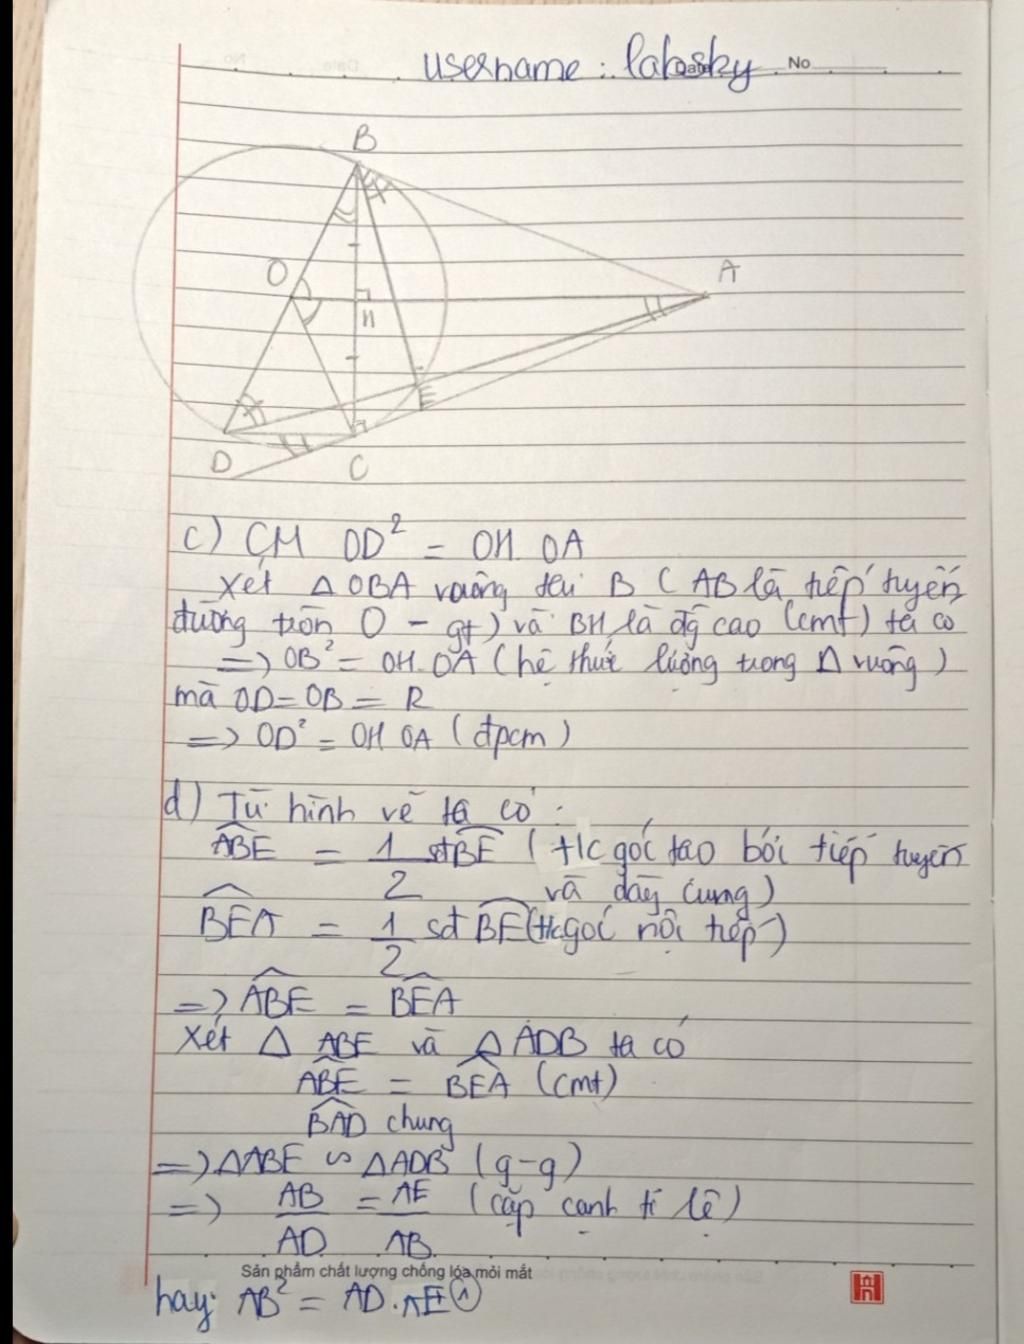 username: labosky No
B
O A
H
E
D C
c) CM OD² = OH. OA
Xét △ OBA vuông tại B ( AB là tiếp tuyến
đường tròn O - gt) và BH là đg cao (cmt) ta có
=> OB² = OH.OA (hệ thức lượng trong △ vuông)
mà OD = OB = R
=> OD² = OH OA (đpcm)
d) Từ hình vẽ ta có :
ABE = 1/2 sđ BE ( t/c góc tạo bởi tiếp tuyến
và dây cung)
BEA = 1/2 sđ BE (t/c góc nội tiếp)
=> ABE = BEA
Xét △ ABE và △ ADB ta có
ABE = BEA (cmt)
BAD chung
=> △ABE ∽ △ADB (g-g)
=> AB/AD = AE/AB (cặp cạnh tỉ lệ)
Sản phẩm chất lượng chống lóa mỏi mắt
hay: AB² = AD.AE ①